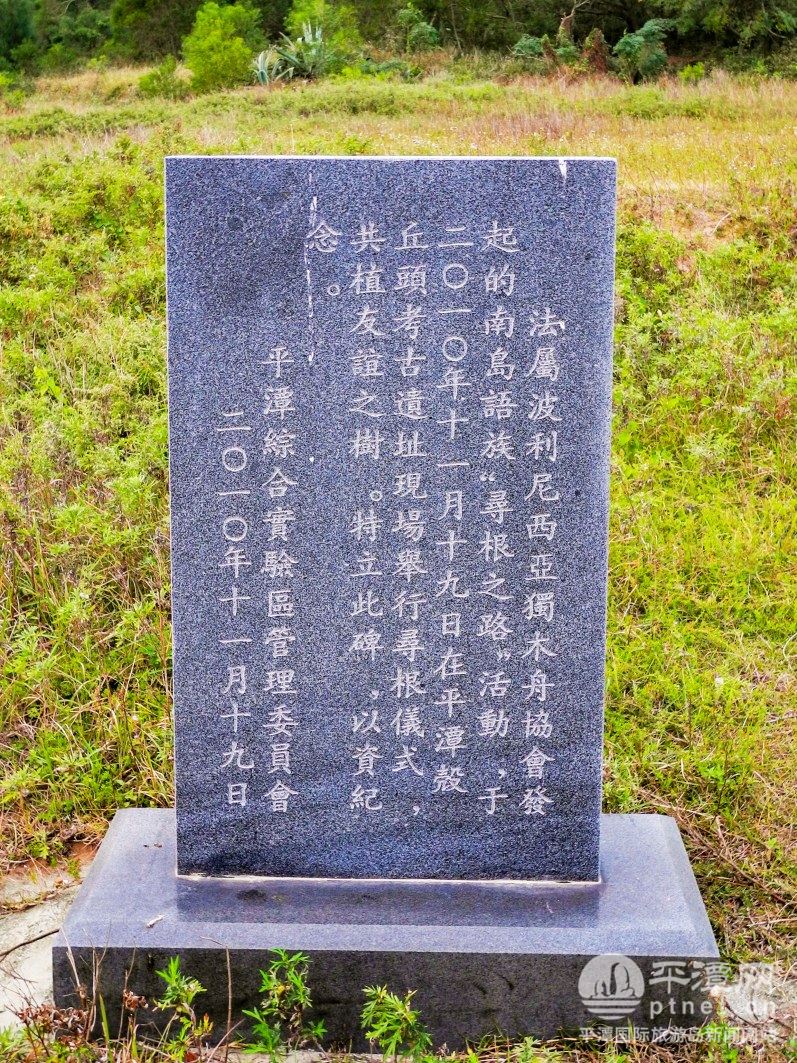 法屬波利尼西亞獨木舟協會發
起的南島語族“尋根之路”活動，于
二〇一〇年十一月十九日在平潭殼
丘頭考古遺址現場舉行尋根儀式，
共植友誼之樹。特立此碑，以資紀
念。
平潭綜合實驗區管理委員會
二〇一〇年十一月十九日
平潭网
ptnet.cn
平潭国际旅游岛新闻网站